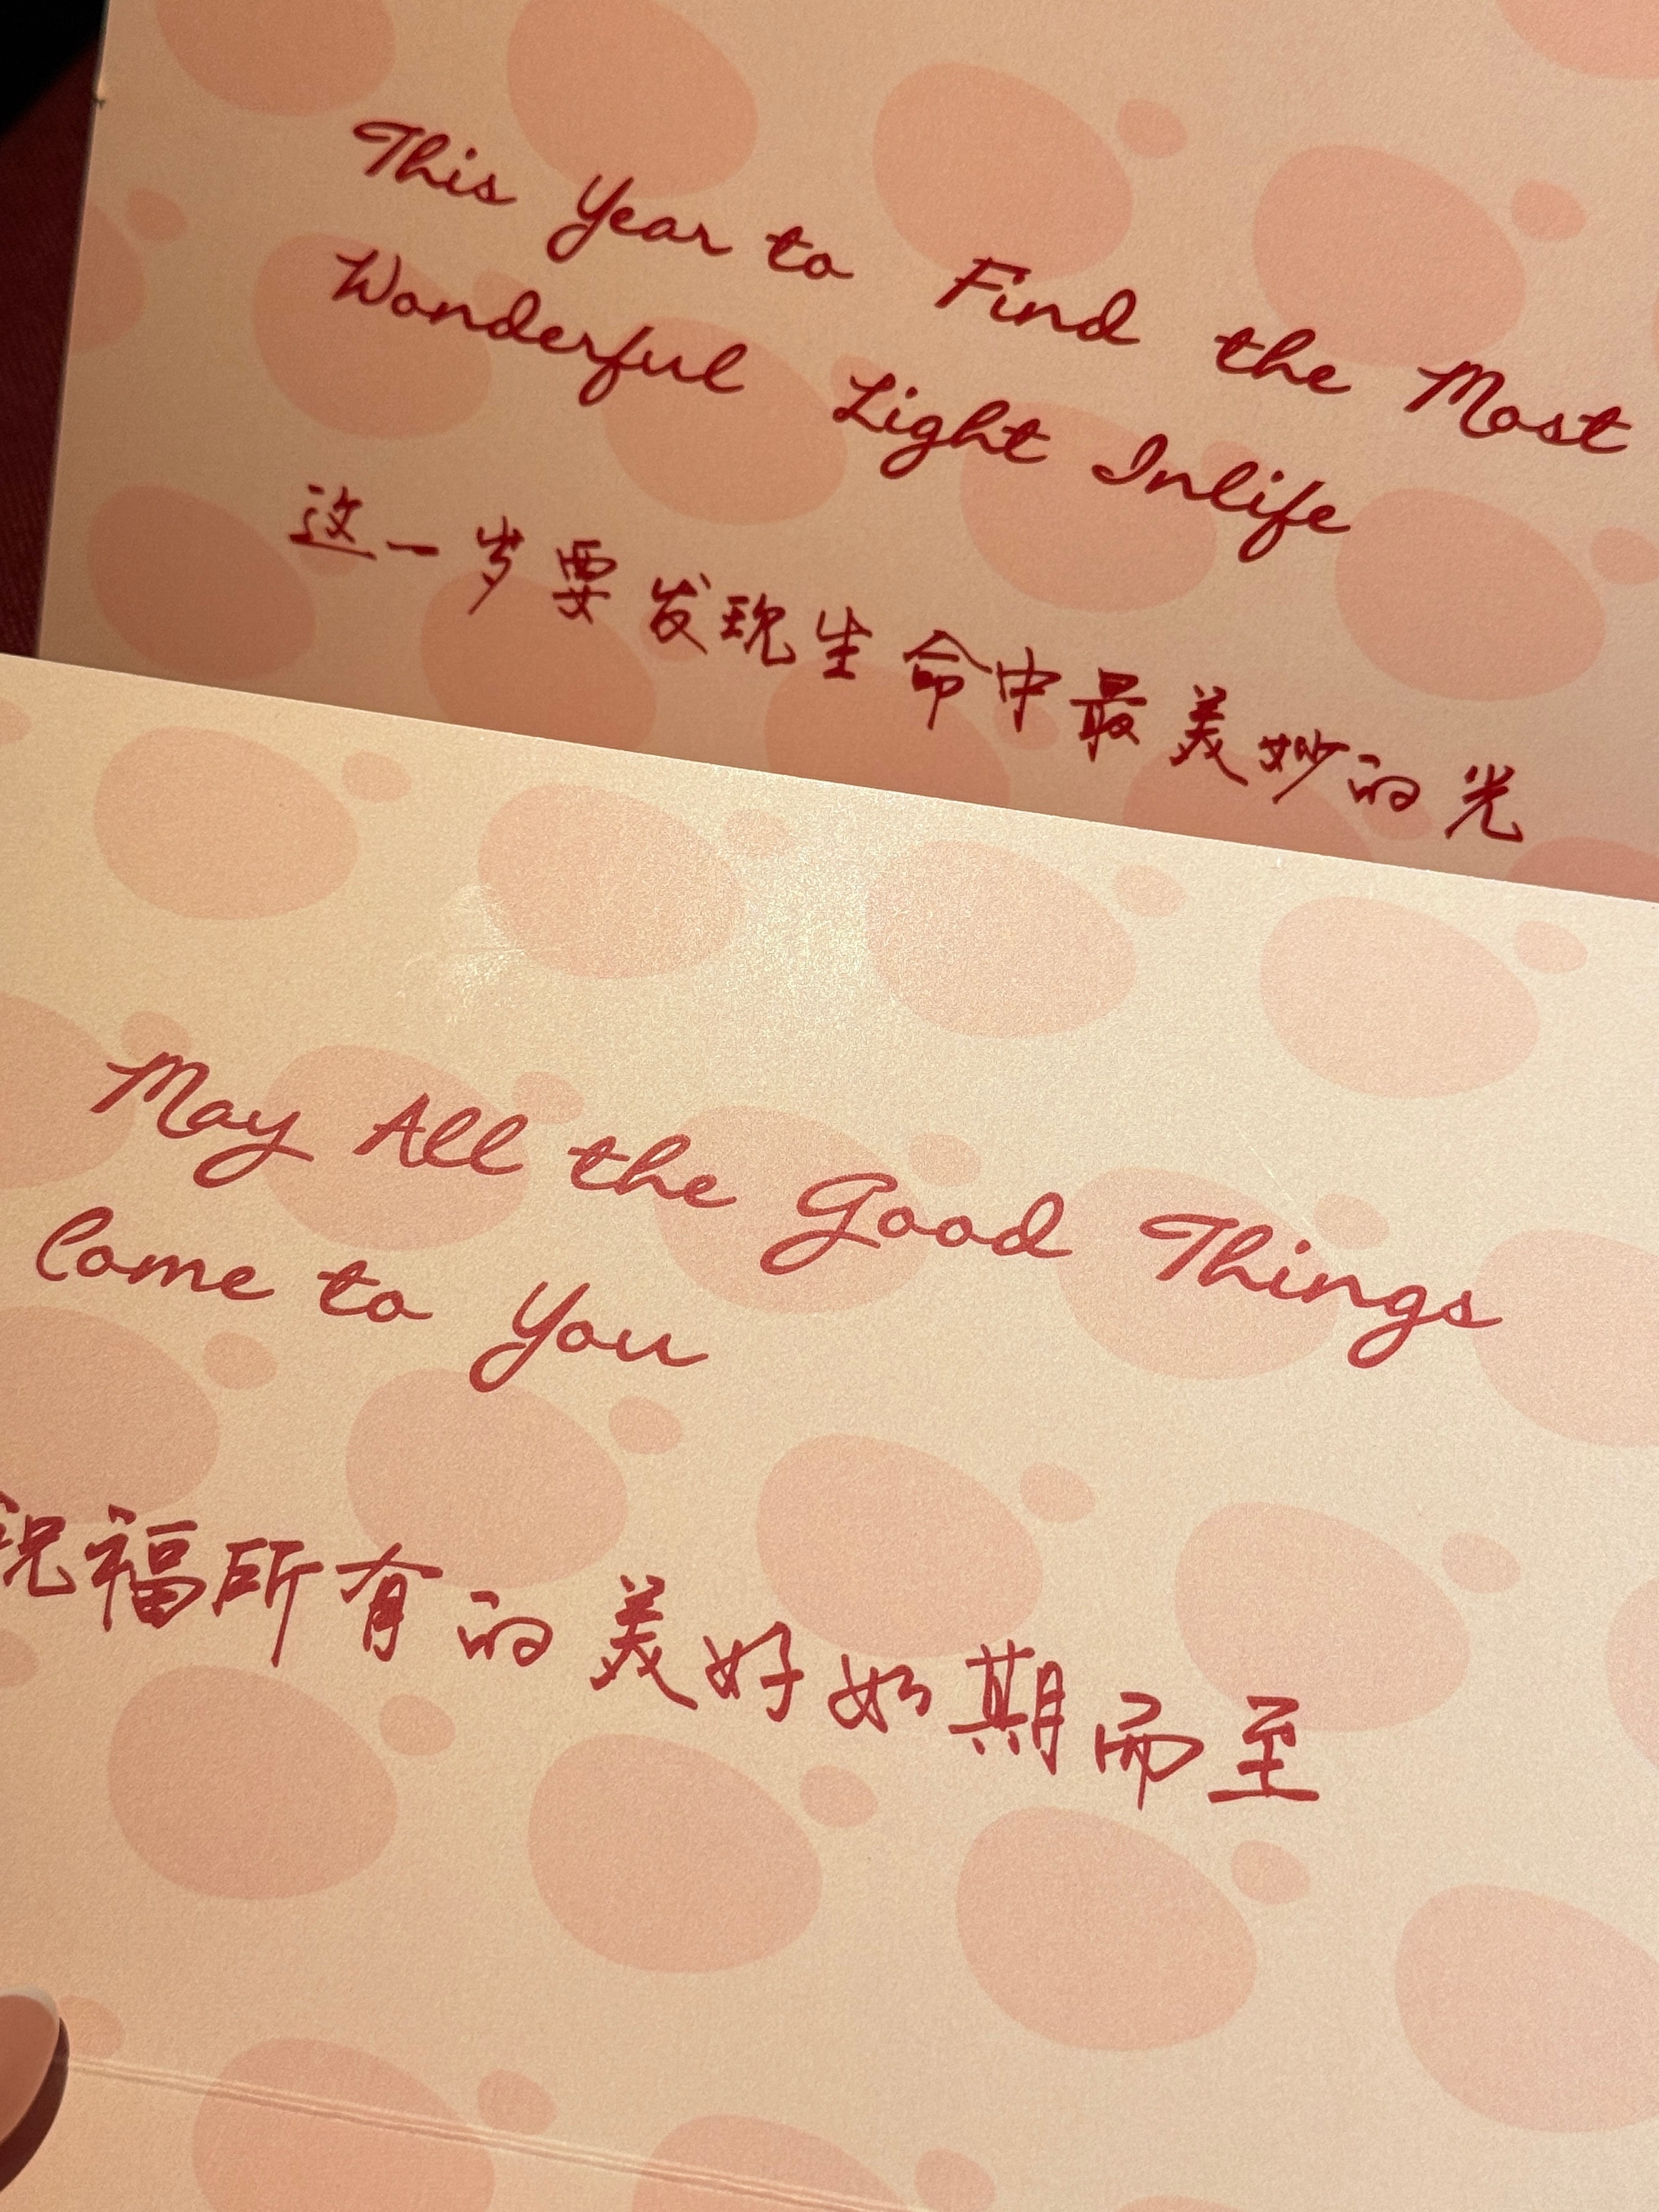 This Year to Find the Most
Wonderful Light Inlife
这一岁要发现生命中最美妙的光
May All the Good Things
Come to You
祝福所有的美好如期而至